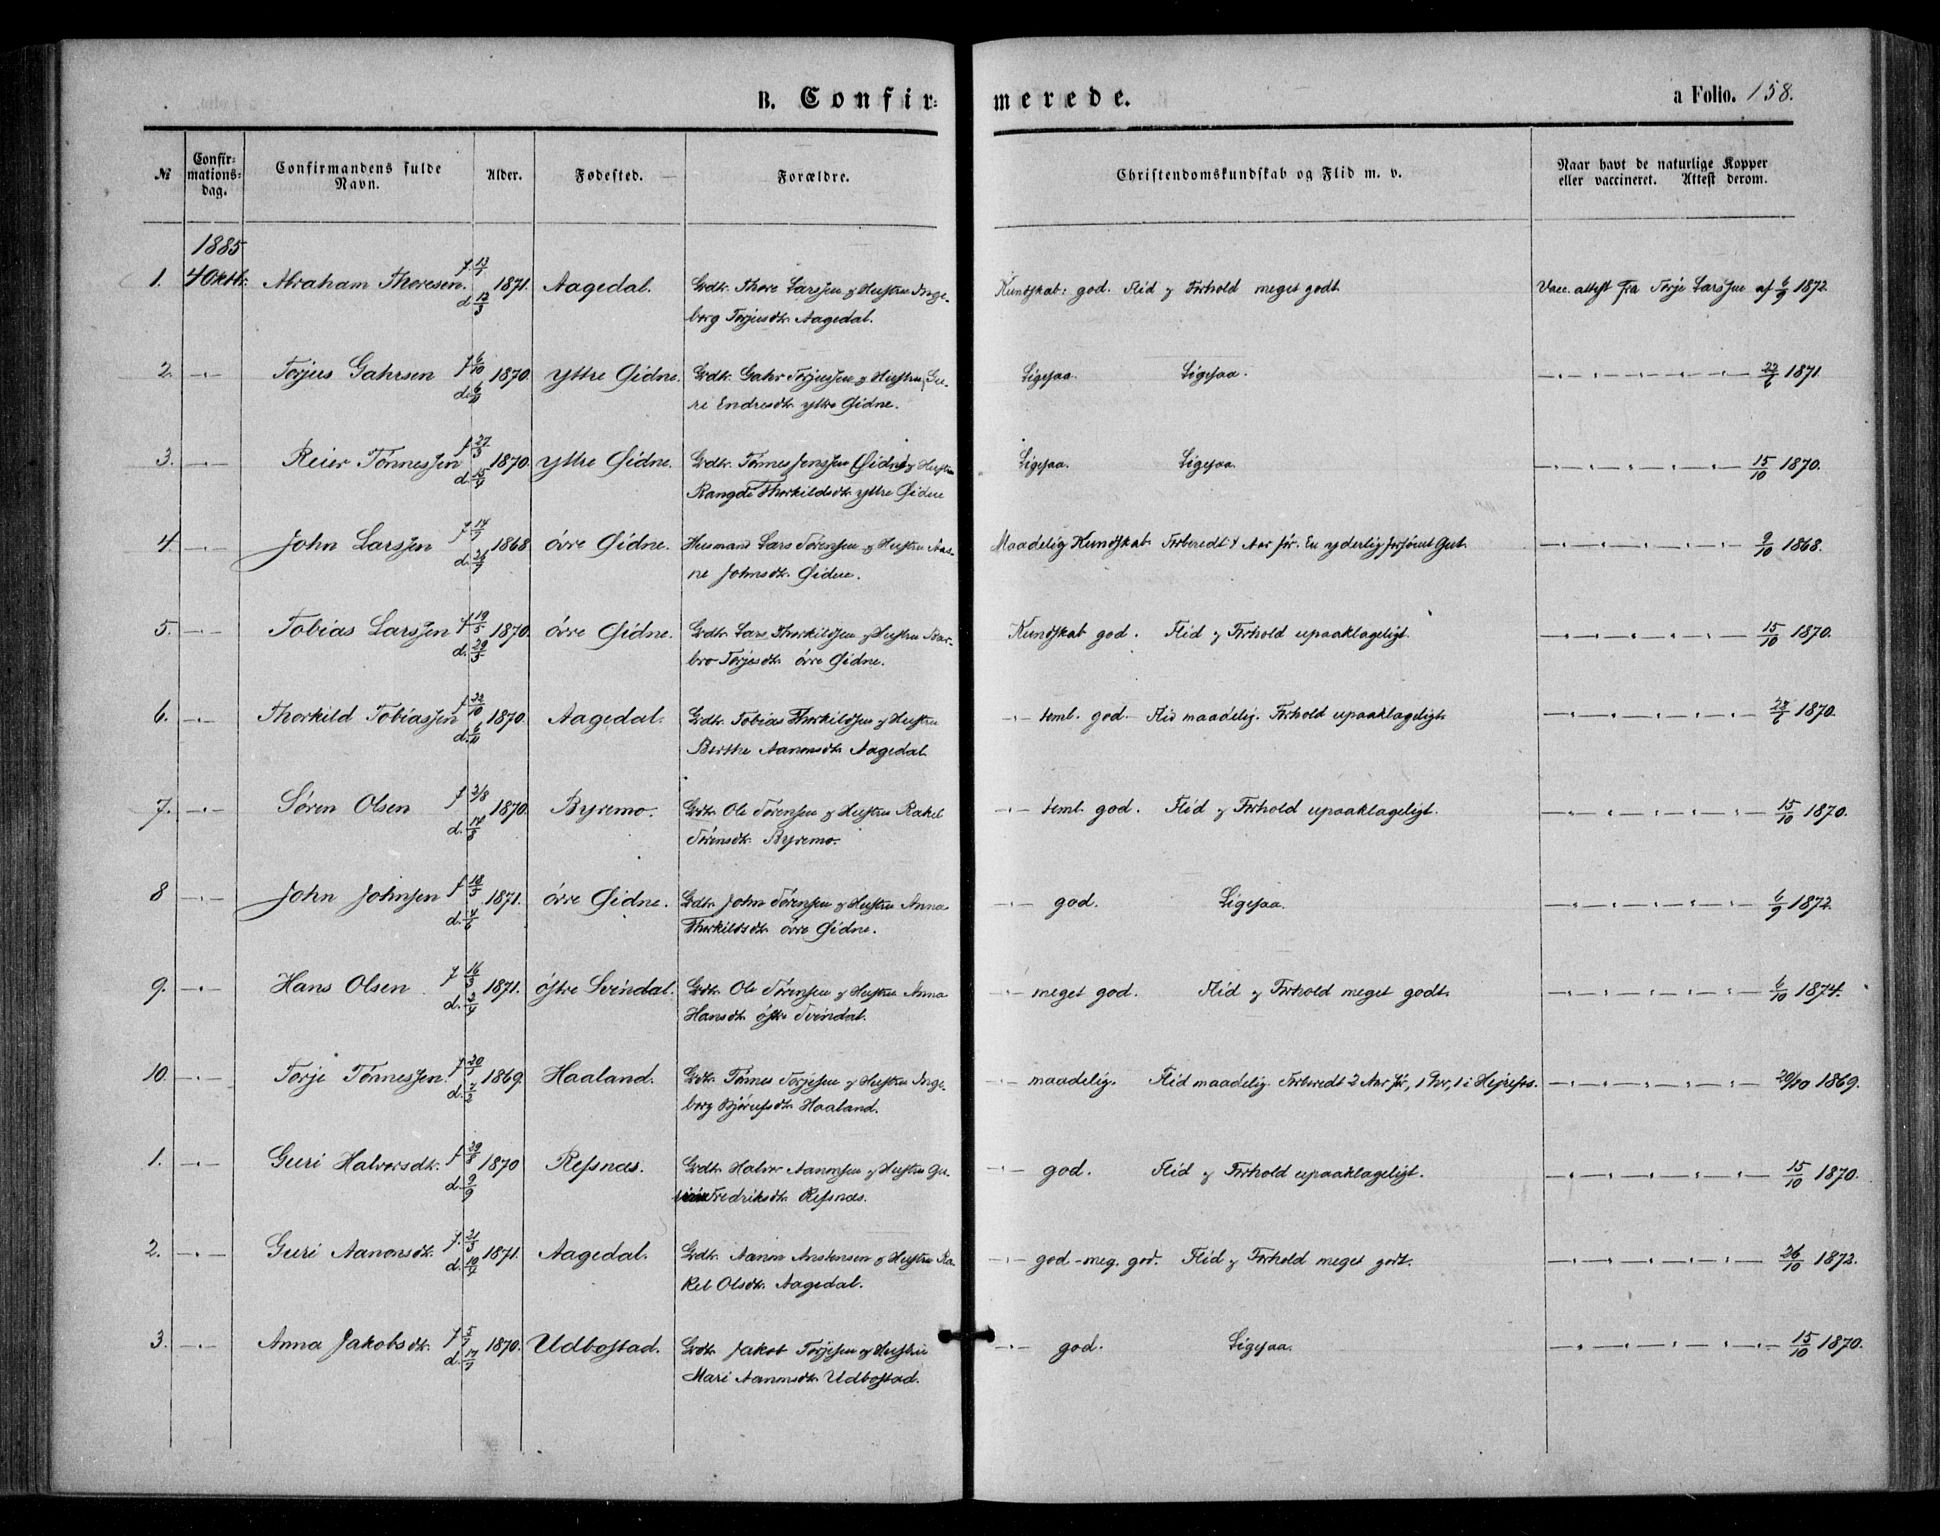 B. Confir=
merede.
a Folio. 158.
№
Confir=
mations=
dag.
Confirmandens fulde
Navn.
Alder.
Fødested.
Forældre.
Christendomskundskab og Flid m. v.
Naar havt de naturlige Kopper
eller vaccineret. Attest derom.
1885
1. 4 Oktb. Abraham Thoresen. f. d. 1871. Aagedal. Grdbr. Thore Larssen og Hustru Inge-
borg Torjusdtr. Aagedal.
Kundskab: god. Flid og Forhold meget godt.
Vacc. attest fra Torje Larssen af 6/9 1872.
2. –„– Torjus Gahrsen f 6/10 d. 6/11 1870. yttre Øidne. Grdbr. Gahr Torjussen og Hustru Gu-
ri Endresdtr. yttre Øidne.
Ligesaa. Ligesaa. 22/6 1871.
3. –„– Reier Tønnessen f 27/3 d. 15/4 1870. yttre Øidne. Grdbr. Tønnes Jenssen Øidne og Hustru
Rangdi Thorkildsdtr. yttre Øidne
Ligesaa. Ligesaa. 15/10 1870.
4. –„– John Larssen f 14/7 d. 26/7 1868 övre Øidne. Husmand Lars Sørensen og Hustru Aas-
ne Johnsdtr. Øidne.
Maadelig Kundskab. Forberedt 1 Aar før. En yderlig forsömt Gut. 9/10 1868.
5. –„– Tobias Larssen f 19/5 d. 29/5 1870. övre Øidne. Grdbr. Lars Thorkildsen og Hustru Bar-
bro Torjesdtr. övre Øidne.
Kundskab god. Flid og Forhold upaaklageligt. 15/10 1870.
6. –„– Thorkild Tobiassen f 22/10 d. 6/11 1870. Aagedal. Grdbr. Tobias Thorkildsen og Hustru
Berthe Aanonsdtr. Aagedal
–„– teml. god. Flid maadelig. Forhold upaaklageligt. 1870.
7. –„– Søren Olsen f 3/8 d. 14/8 1870. Byremo. Grdbr. Ole Sørensen og Hustru Rakel
Sørensdtr. Byremo.
–„– teml. god. Flid og Forhold upaaklageligt. 15/10 1870.
8 –„– John Johnsen f 18/5 d. 4/6 1871. övre Øidne. Grdbr. John Sørensen og Hustru Anna
Thorkildsdtr. övre Øidne.
–„– god. Ligesaa. 6/9 1872.
9. –„– Hans Olsen f 16/3 d. 2/4 1871. östre Svindal. Grdbr. Ole Sørensen og Hustru Anna
Hansdtr. östre Svindal.
–„– meget god. Flid og Forhold meget godt. 6/10 1874.
10. –„– Torje Tønnessen. f 20/1 d. 7/2 1869. Haaland. Grdbr. Tønnes Torjesen og Hustru Inge-
borg Haaland.
–„– maadelig. Flid maadelig. Forberedt 2 Aar før, 20/10 1869.
1. –„– Guri Halvorsdtr. f 29/8 d. 9/9 1870 Refsnæs. Grdbr. Halvor Aanonsen og Hustru Gu-
Fredriksdtr. Refsnæs.
–„– god. Flid og Forhold upaaklageligt. 15/10 1870.
2. –„– Guri Aanonsdtr. f. 21/3 d. 10/4 1871. Aagedal. Grdbr. Aanon Anstensen og Hustru Ra-
kel Olsdtr. Aagedal.
–„– god-meg. god. Flid og Forhold meget godt. 26/10 1872.
3. –„– Anna Jakobsdtr. f d. 1870. Udbostad. Grdbr. Jakob Torjesen og Hustru
Mari Aanonsdtr. Udbostad.
–„– god. Ligesaa. 15/10 1870.